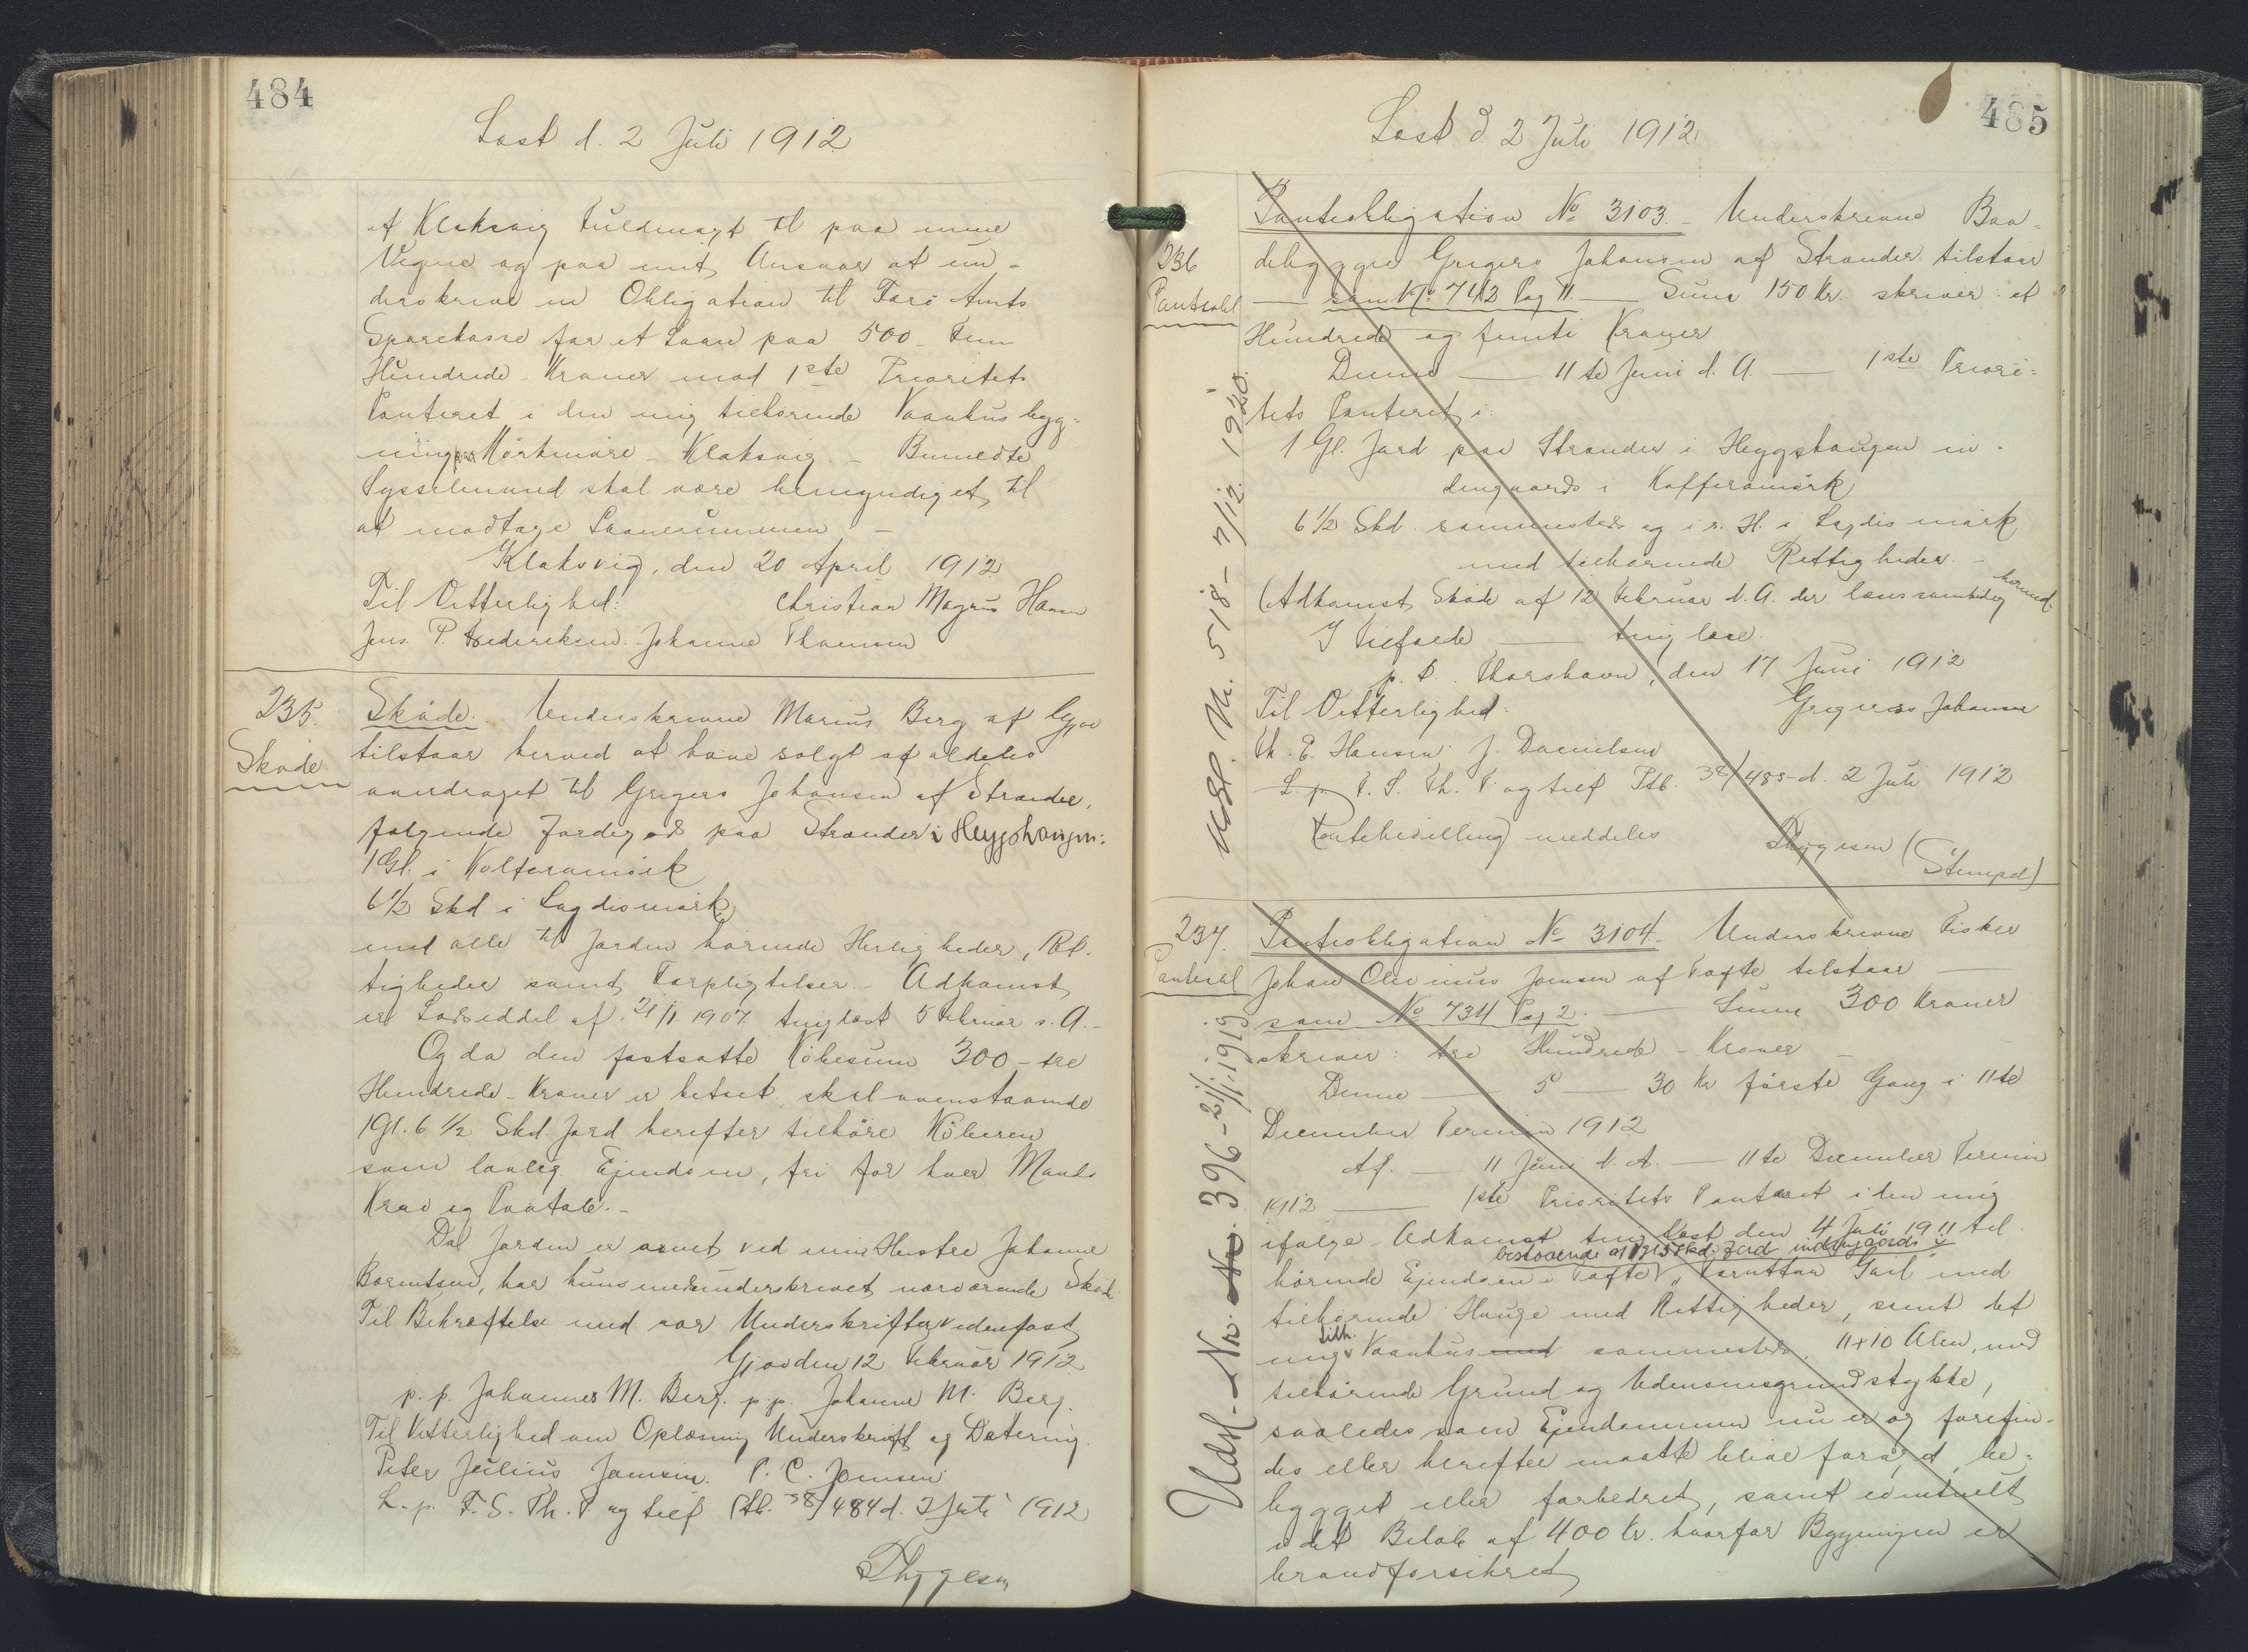 484
Læst d. 2 Juli 1912
af Klaksvig Fuldmagt til paa mine
Vegne og paa mit Ansvar at un-
derskrive en Obligation til Færö Amts
Sparekasse for et Laan paa 500 - Fem
Hundrede - Kroner mod 1ste Prioritets
Panteret i den mig tilhörende Vaanhusbyg-
ning paa Mörkinöre - Klaksvig. - Bemeldte
Sysselmand skal være bemyndiget til
at modtage Laanesummen -
Klaksvig, den 20 April 1912
Til Vitterlighed: Christian Magnus Hansen
Jens P. Frederiksen. Johanne Thomsen
235.
Sköde.
Sköde. Underskrevne Marius Berg af Gjov
tilstaar herved at have solgt og aldeles
overdraget til Gregers Johansen af Strænder,
fölgende Jordegods paa Strænder i Heygshaugen:
1 Gl. i Kolferamörk
6 1/2 Skd i Lagdismörk
med alle til Jorden hörende Herligheder, Ret-
tigheder samt Forpligtelser. - Adkomst
er Lodseddel af 21/1 1907. tinglæst 5 Februar s. A. -
Og da den fastsatte Köbesum 300 - tre
Hundrede - Kroner er betalt skal ovenstaaende
1 Gl. 6 1/2 Skd. Jord herefter tilhöre Köberen
som lovlig Ejendom, fri for hver Mands
Krav og Paatale. -
Da Jorden er arvet ved min Hustru Johanne
Berentsen, har hun medunderskrevet nærværende Sköde
Til Bekræftelse med vor Underskrifter vedenfast
Gjov den 12 Februar 1912
p. p. Johannes M. Berg. p. p. Johanne M. Berg.
Til Vitterlighed om Oplæsning Underskrift og Datering.
Peter Julius Joensen. P. C. Joensen
L. p. F. S. Th. P. og tilf Ptb. 38/484 d. 2 Juli 1912
Thygesen
485
Læst d 2 Juli 1912
236
Panteobl
Panteobligation No 3103. - Underskrevne Baa-
debygger Gregers Johansen af Strænder tilstaar
som No 742 Pag 11. Sum 150 Kr. skriver: et
Hundrede og femti Kroner
Denne 11te Juni d. A. 1ste Priori-
tets Panteret i
1 Gl. Jord paa Strænder i Heygshaugen in-
dengaards i Kolferamörk
6 1/2 Skd. sammesteds og i s. H. i Lagdismörk
med tilhörende Rettigheder. -
(Adkomst Sköde af 12 Februar d. A. der læses samtidig hermed
I Tilfælde tinglæse.
p. t. Thorshavn, den 17 Juni 1912
Til Vitterlighed: Gregers Johansen
Th. E. Hansen. J. Danielsen
L. p. F. S. Th. P. og tilf Ptb. 38/485 d. 2 Juli 1912
Rentebevilling meddeles Thygesen (Stempel)
Udsl. Nr. 518 - 7/12. 1920.
237.
Panteobl
Panteobligation No 3104. Underskrevne Fisker
Johan Olevinus Joensen af Tofte tilstaar
som No 734 Pag 2. Sum 300 Kroner
skriver: tre Hundrede - Kroner
Denne 5 30 Kr förste Gang i 11te
December Termin 1912
Af. 11 Juni d. A. 11te December Termin
1912 1ste Prioritets Panteret i den mig
ifölge Adkomst tinglæst den 4 Juli 1911 til-
bestaaende af 1 Gl 5 Skd: Jord indengaards i
hörende Ejendom i Tofte Gail med
tilhörende Hauge med Rettigheder, samt det
mig tilh. Vaanhus med sammesteds, 11x10 Alen, med
tilhörende Grund og Udenomsgrundstykke,
saaledes som Ejendommen nu er og forefin-
des eller herefter maatte blive foröget, be-
bygget eller forbedret, samt eventuelt
i det Belöb af 400 Kr. hvorfor Bygningen er
brandforsikret
Udsl. Nr. Nr. 396 - 21/1. 1919